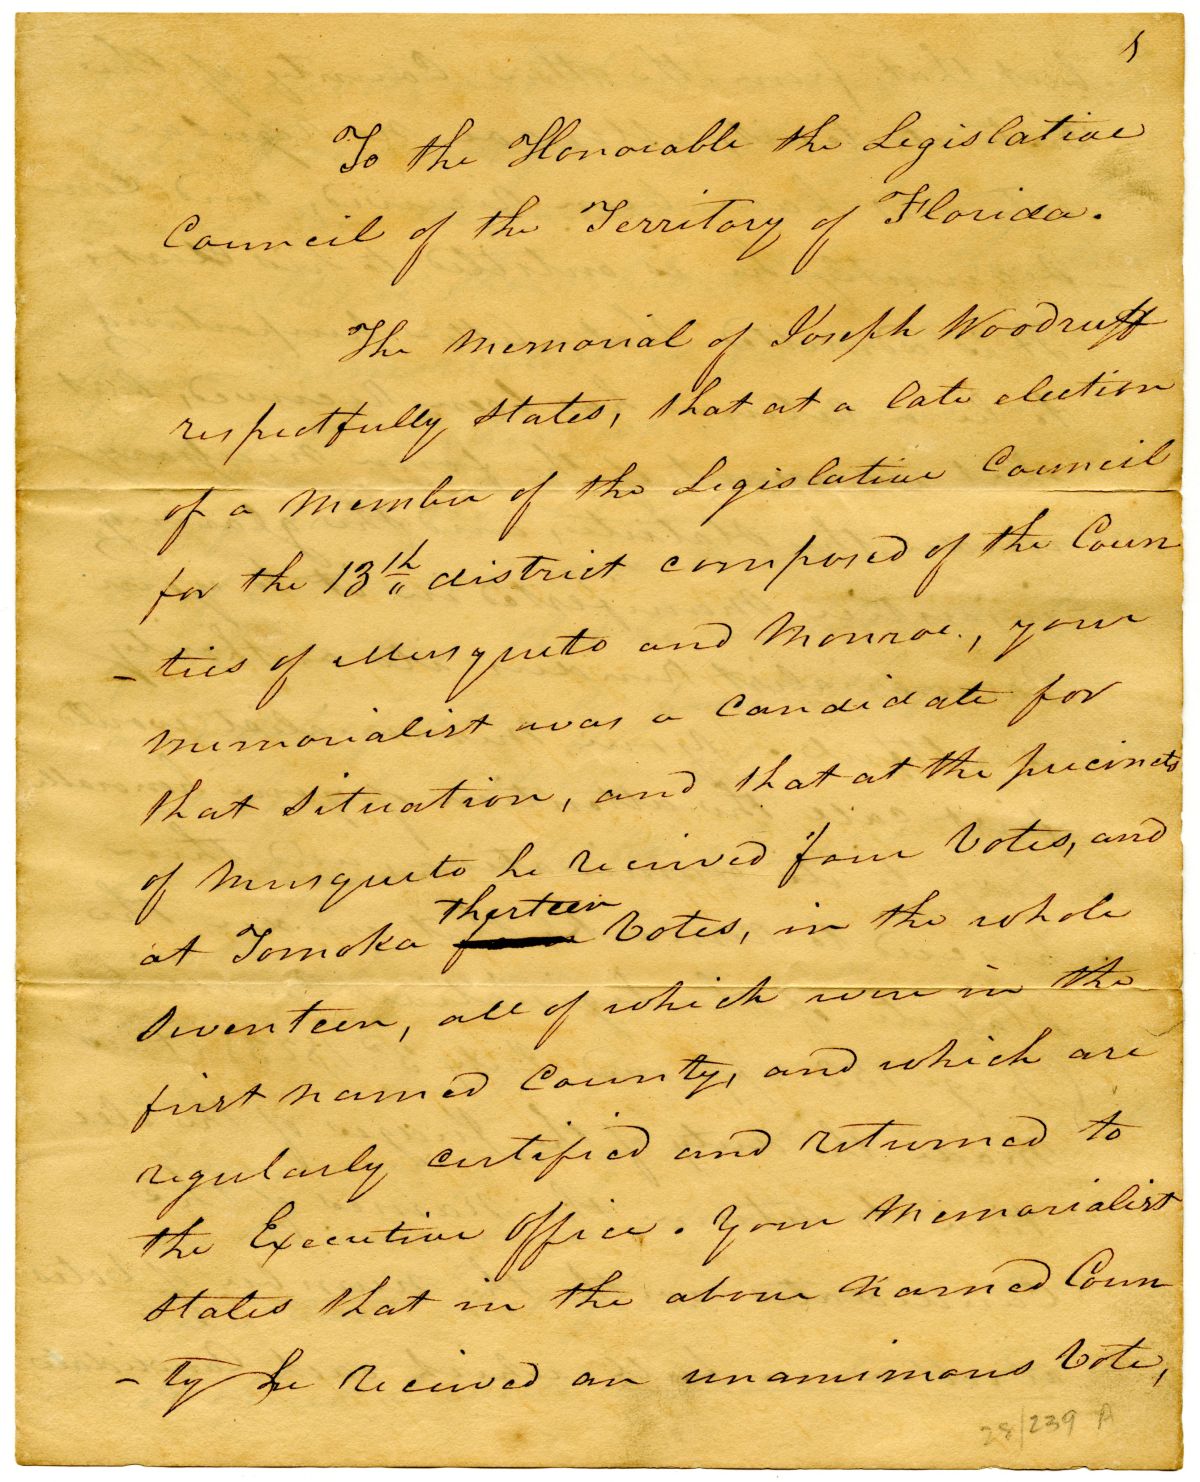 1
To the Honorable the Legislative
Council of the Territory of Florida.
The Memorial of Joseph Woodruff
respectfully states, that at a late election
of a Member of the Legislative Council
for the 13th district composed of the Coun
-ties of Musqueto and Monroe, your
Memorialist was a Candidate for
that Situation, and that at the precincts
of Musqueto he received four Votes, and
at Tomoka thirteen Votes, in the whole
Seventeen, all of which were in the
first named County, and which are
regularly certified and returned to
the Executive Office. Your Memorialist
states that in the above named Coun
-ty he received an unanimous Vote,
28/239 A